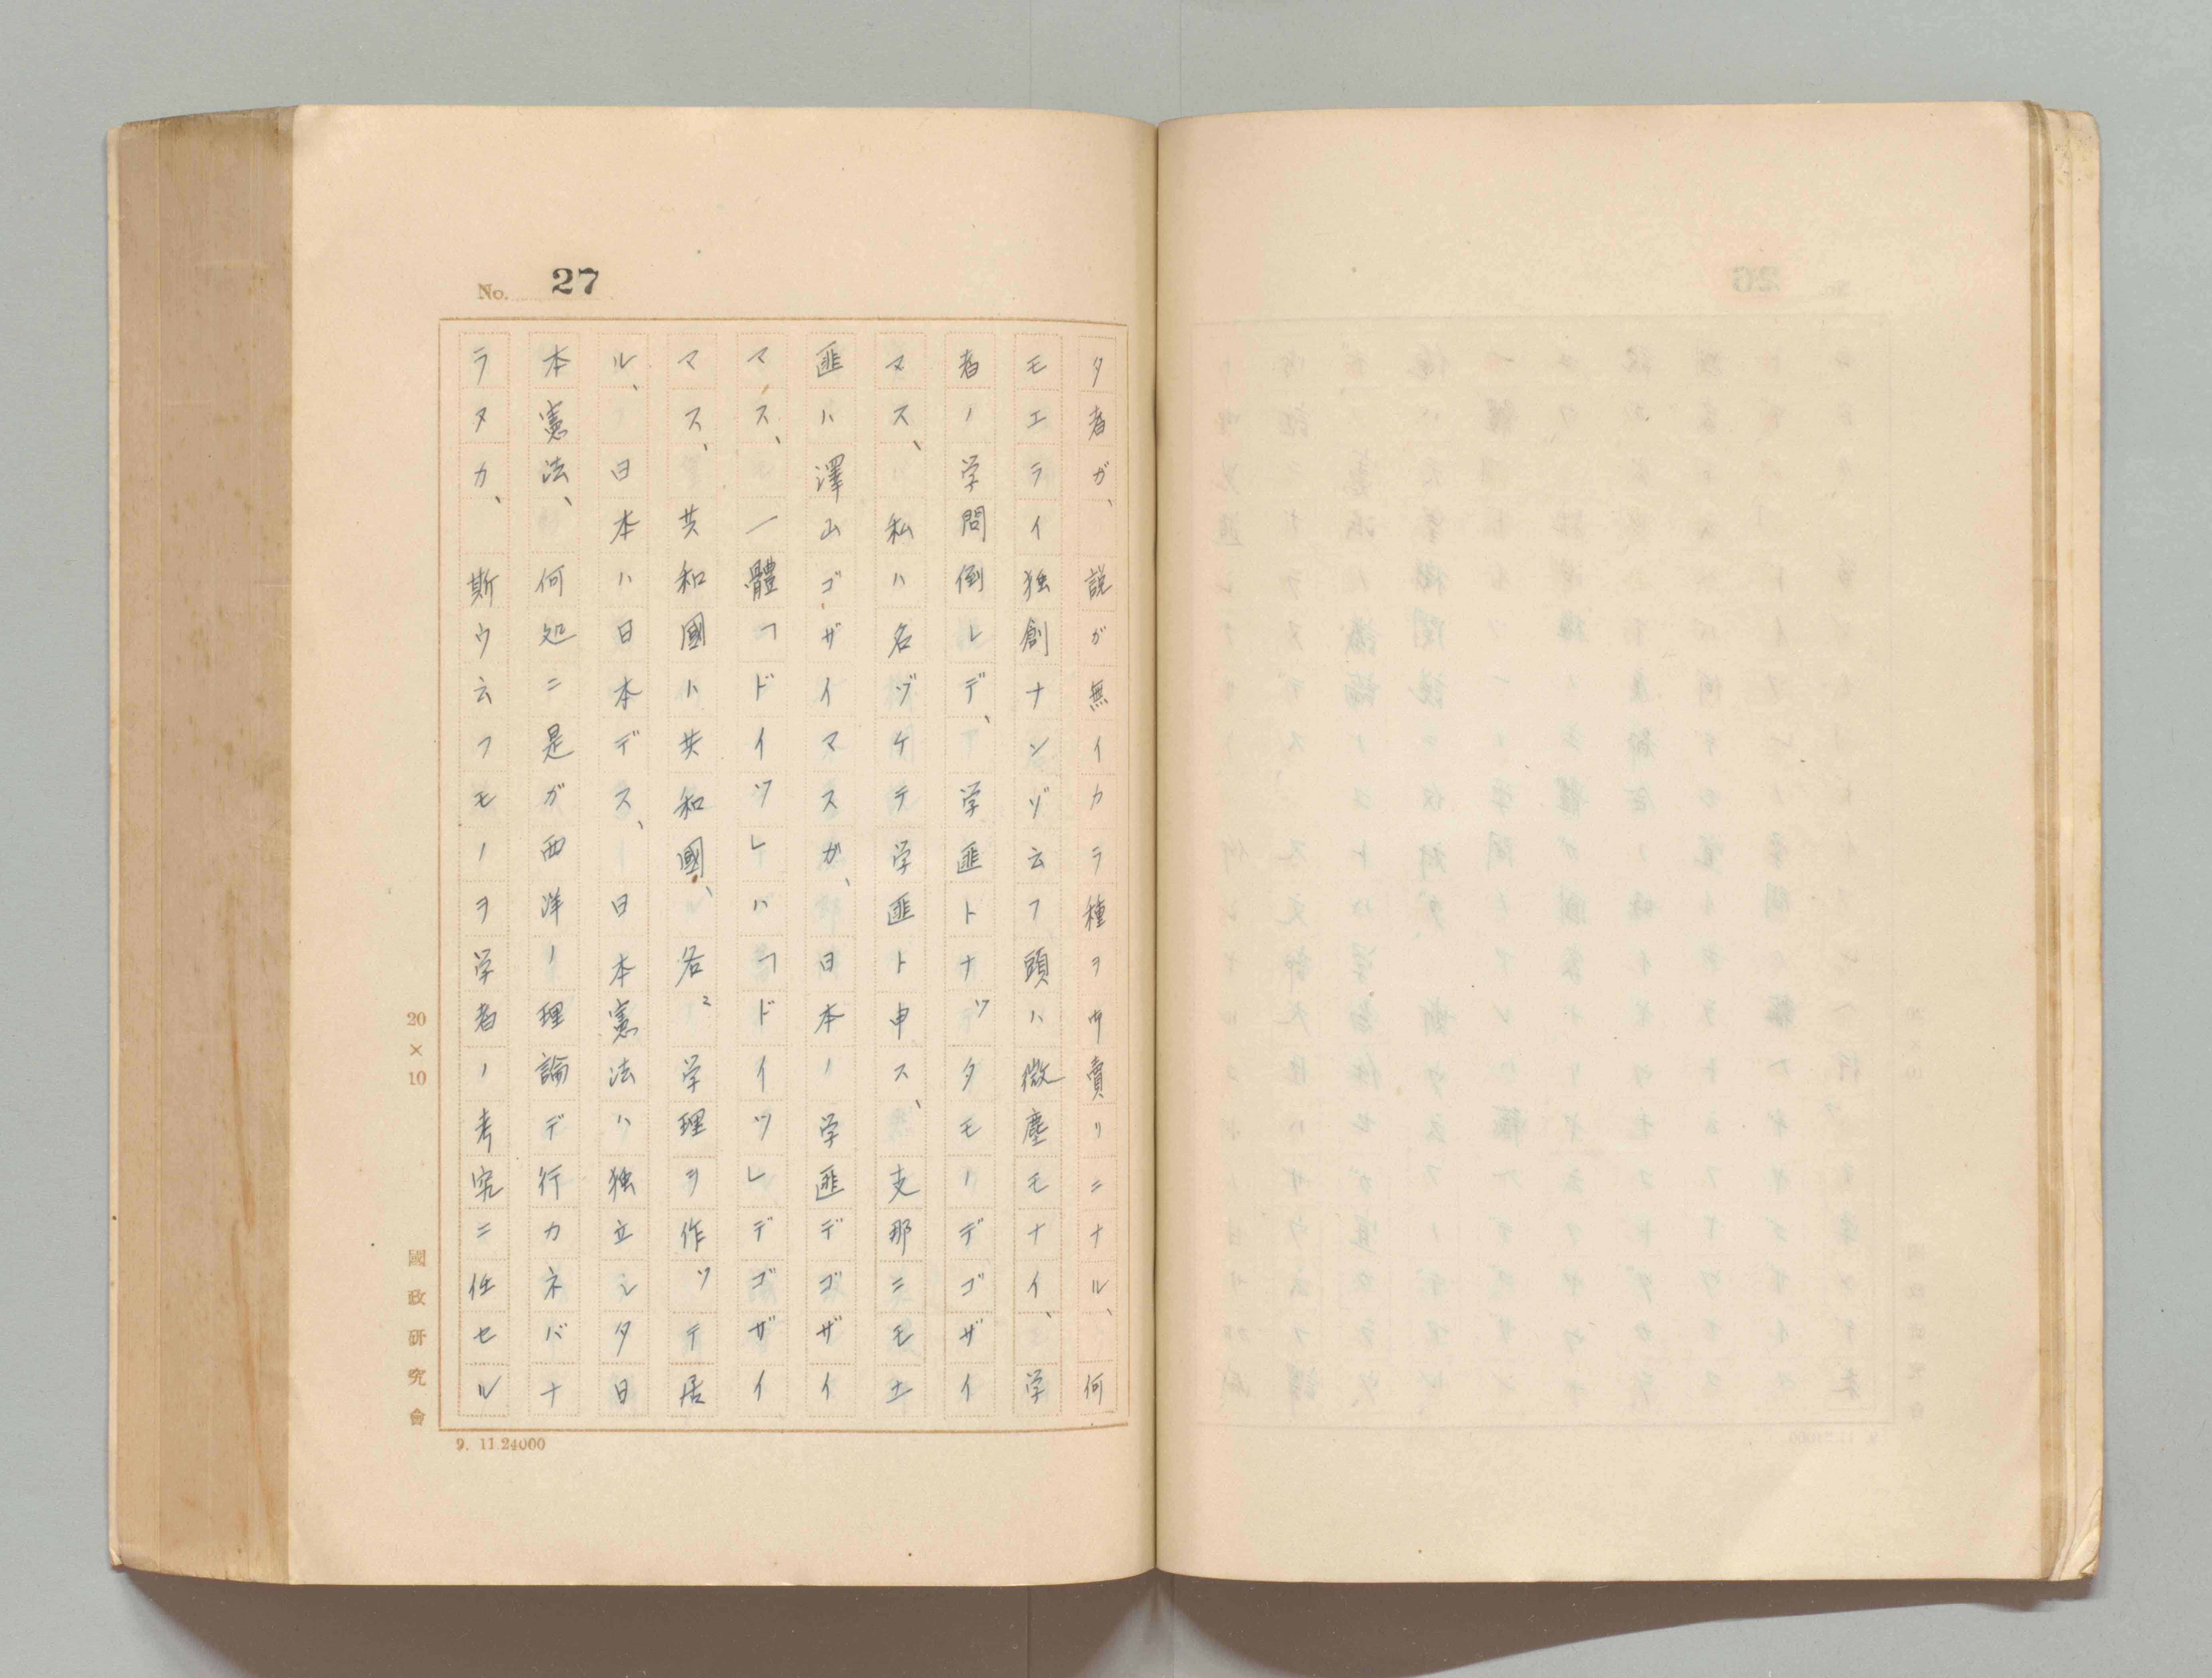 No. 27
タ者ガ、説ガ無イカラ種ヲ中賣リニナル、何
モエライ独創ナンゾ云フ頭ハ微塵モナイ、学
者ノ学問倒レデ、学匪トナツタモノデゴザイ
マス、私ハ名ヅケテ学匪ト申ス、支那ニモ土
匪ハ澤山ゴザイマスガ、日本ノ学匪デゴザイ
マス、一體「ドイツレハ「ドイツレデゴザイ
マス、共和國ハ共和國、各〻学理ヲ作ツテ居
ル、日本ハ日本デス、日本憲法ハ独立シタ日
本憲法、何処ニ是ガ西洋ノ理論デ行カネバナ
ラヌカ、斯ウ云フモノヲ学者ノ考究ニ任セル
20×10
國政研究會
9. 11.24000